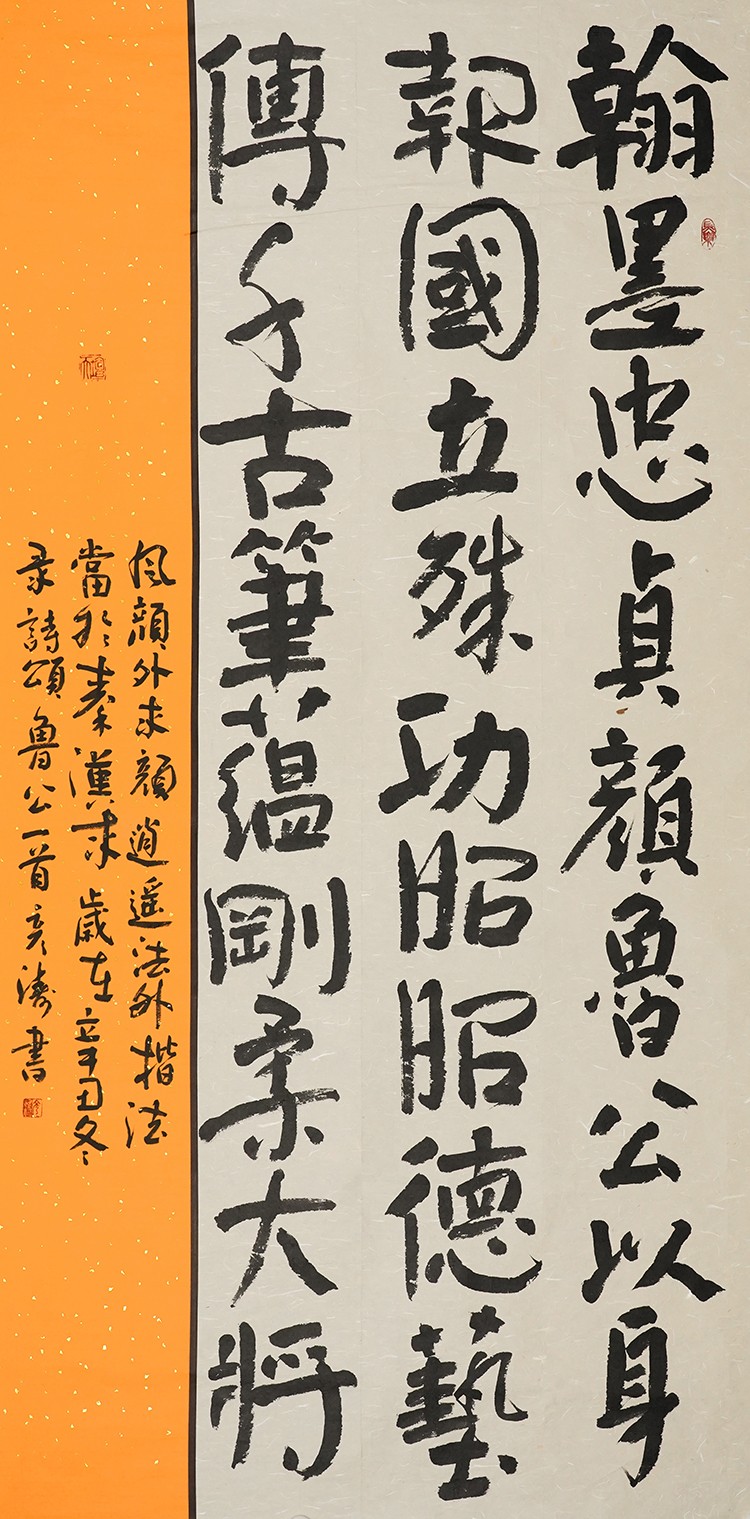 翰墨忠貞顔魯公以身
報國立殊功昭昭德藝
傳千古筆蘊剛柔大將
風顔外求顔逍遥法外楷法
當於秦漢求歲在辛丑冬
录詩頌魯公一首彦濤書